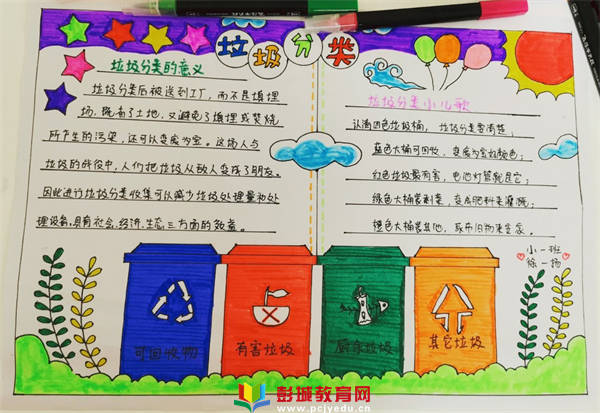 垃圾分类
垃圾分类的意义
垃圾分类后被送到工厂，而不是填埋
场，既省了土地，又避免了填埋或焚烧
所产生的污染，还可以变废为宝。这场人与
垃圾的战役中，人们把垃圾从敌人变成了朋友。
因此进行垃圾分类收集可以减少垃圾处理量和处
理设备，具有社会、经济、生态三方面的效益。
垃圾分类小儿歌
认清四色垃圾桶，垃圾分类要清楚；
蓝色大桶可回收，变废为宝
红色垃圾最有害，电池灯管就是它；
绿色大桶装剩菜，变成肥料来灌溉；
橙色大桶装其他，
小一班
徐一扬
可回收物
有害垃圾
厨余垃圾
其它垃圾
彭城教育网
www.pcjyedu.cn